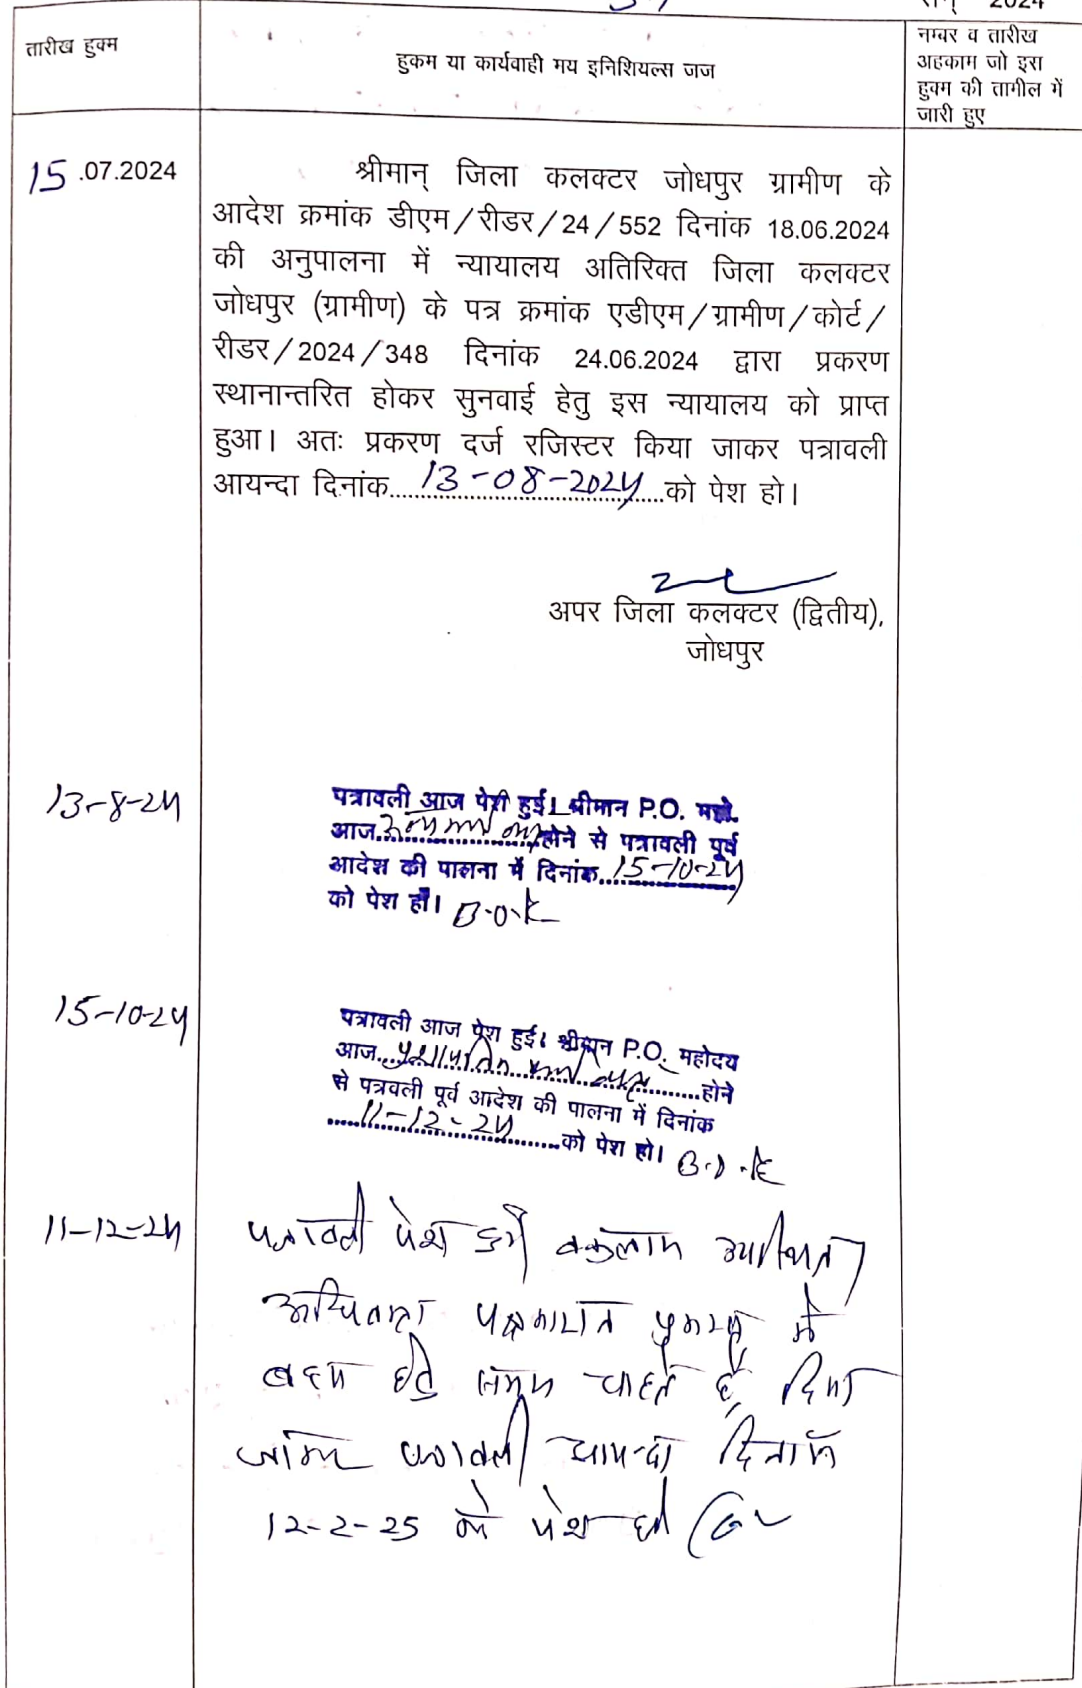 सन् 2024
तारीख हुक्म
हुकम या कार्यवाही मय इनिशियल्स जज
नम्बर व तारीख
अहकाम जो इस
हुक्म की तामील में
जारी हुए
15.07.2024
श्रीमान् जिला कलक्टर जोधपुर ग्रामीण के
आदेश क्रमांक डीएम/रीडर/24/552 दिनांक 18.06.2024
की अनुपालना में न्यायालय अतिरिक्त जिला कलक्टर
जोधपुर (ग्रामीण) के पत्र क्रमांक एडीएम/ग्रामीण/कोर्ट/
रीडर/2024/348 दिनांक 24.06.2024 द्वारा प्रकरण
स्थानान्तरित होकर सुनवाई हेतु इस न्यायालय को प्राप्त
हुआ। अतः प्रकरण दर्ज रजिस्टर किया जाकर पत्रावली
आयन्दा दिनांक 13-08-2024 को पेश हो।
अपर जिला कलक्टर (द्वितीय),
जोधपुर
13-8-24
पत्रावली आज पेश हुई। श्रीमान P.O. महो.
आज होने से पत्रावली पूर्व
आदेश की पालना में दिनांक 15-10-24
को पेश हो। B.O.R
15-10-24
पत्रावली आज पेश हुई। श्रीमान P.O. महोदय
आज होने
से पत्रवली पूर्व आदेश की पालना में दिनांक
11-12-24 को पेश हो।
11-12-24
पत्रावली पेश हुई वकुलाय उपस्थित
पक्षकारान प्रकरण में
बहस हेतु समय चाहते है, दिया
जाकर पत्रावली आयन्दा दिनांक
12-2-25 को पेश हो